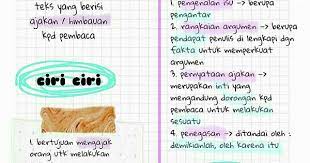 teks yang berisi
ajakan / himbauan
kpd pembaca
ciri ciri
1. bertujuan mengajak
orang utk melakukan
1. pengenalan isu -> berupa
pengantar
2. rangkaian argumen -> berupa
pendapat penulis di lengkapi dgn
fakta untuk memperkuat
argumen
3. pernyataan ajakan ->
merupakan inti yang
mengandung dorongan kpd
pembaca untuk melakukan
sesuatu
4. penegasan -> ditandai oleh :
demikianlah, oleh karena itu